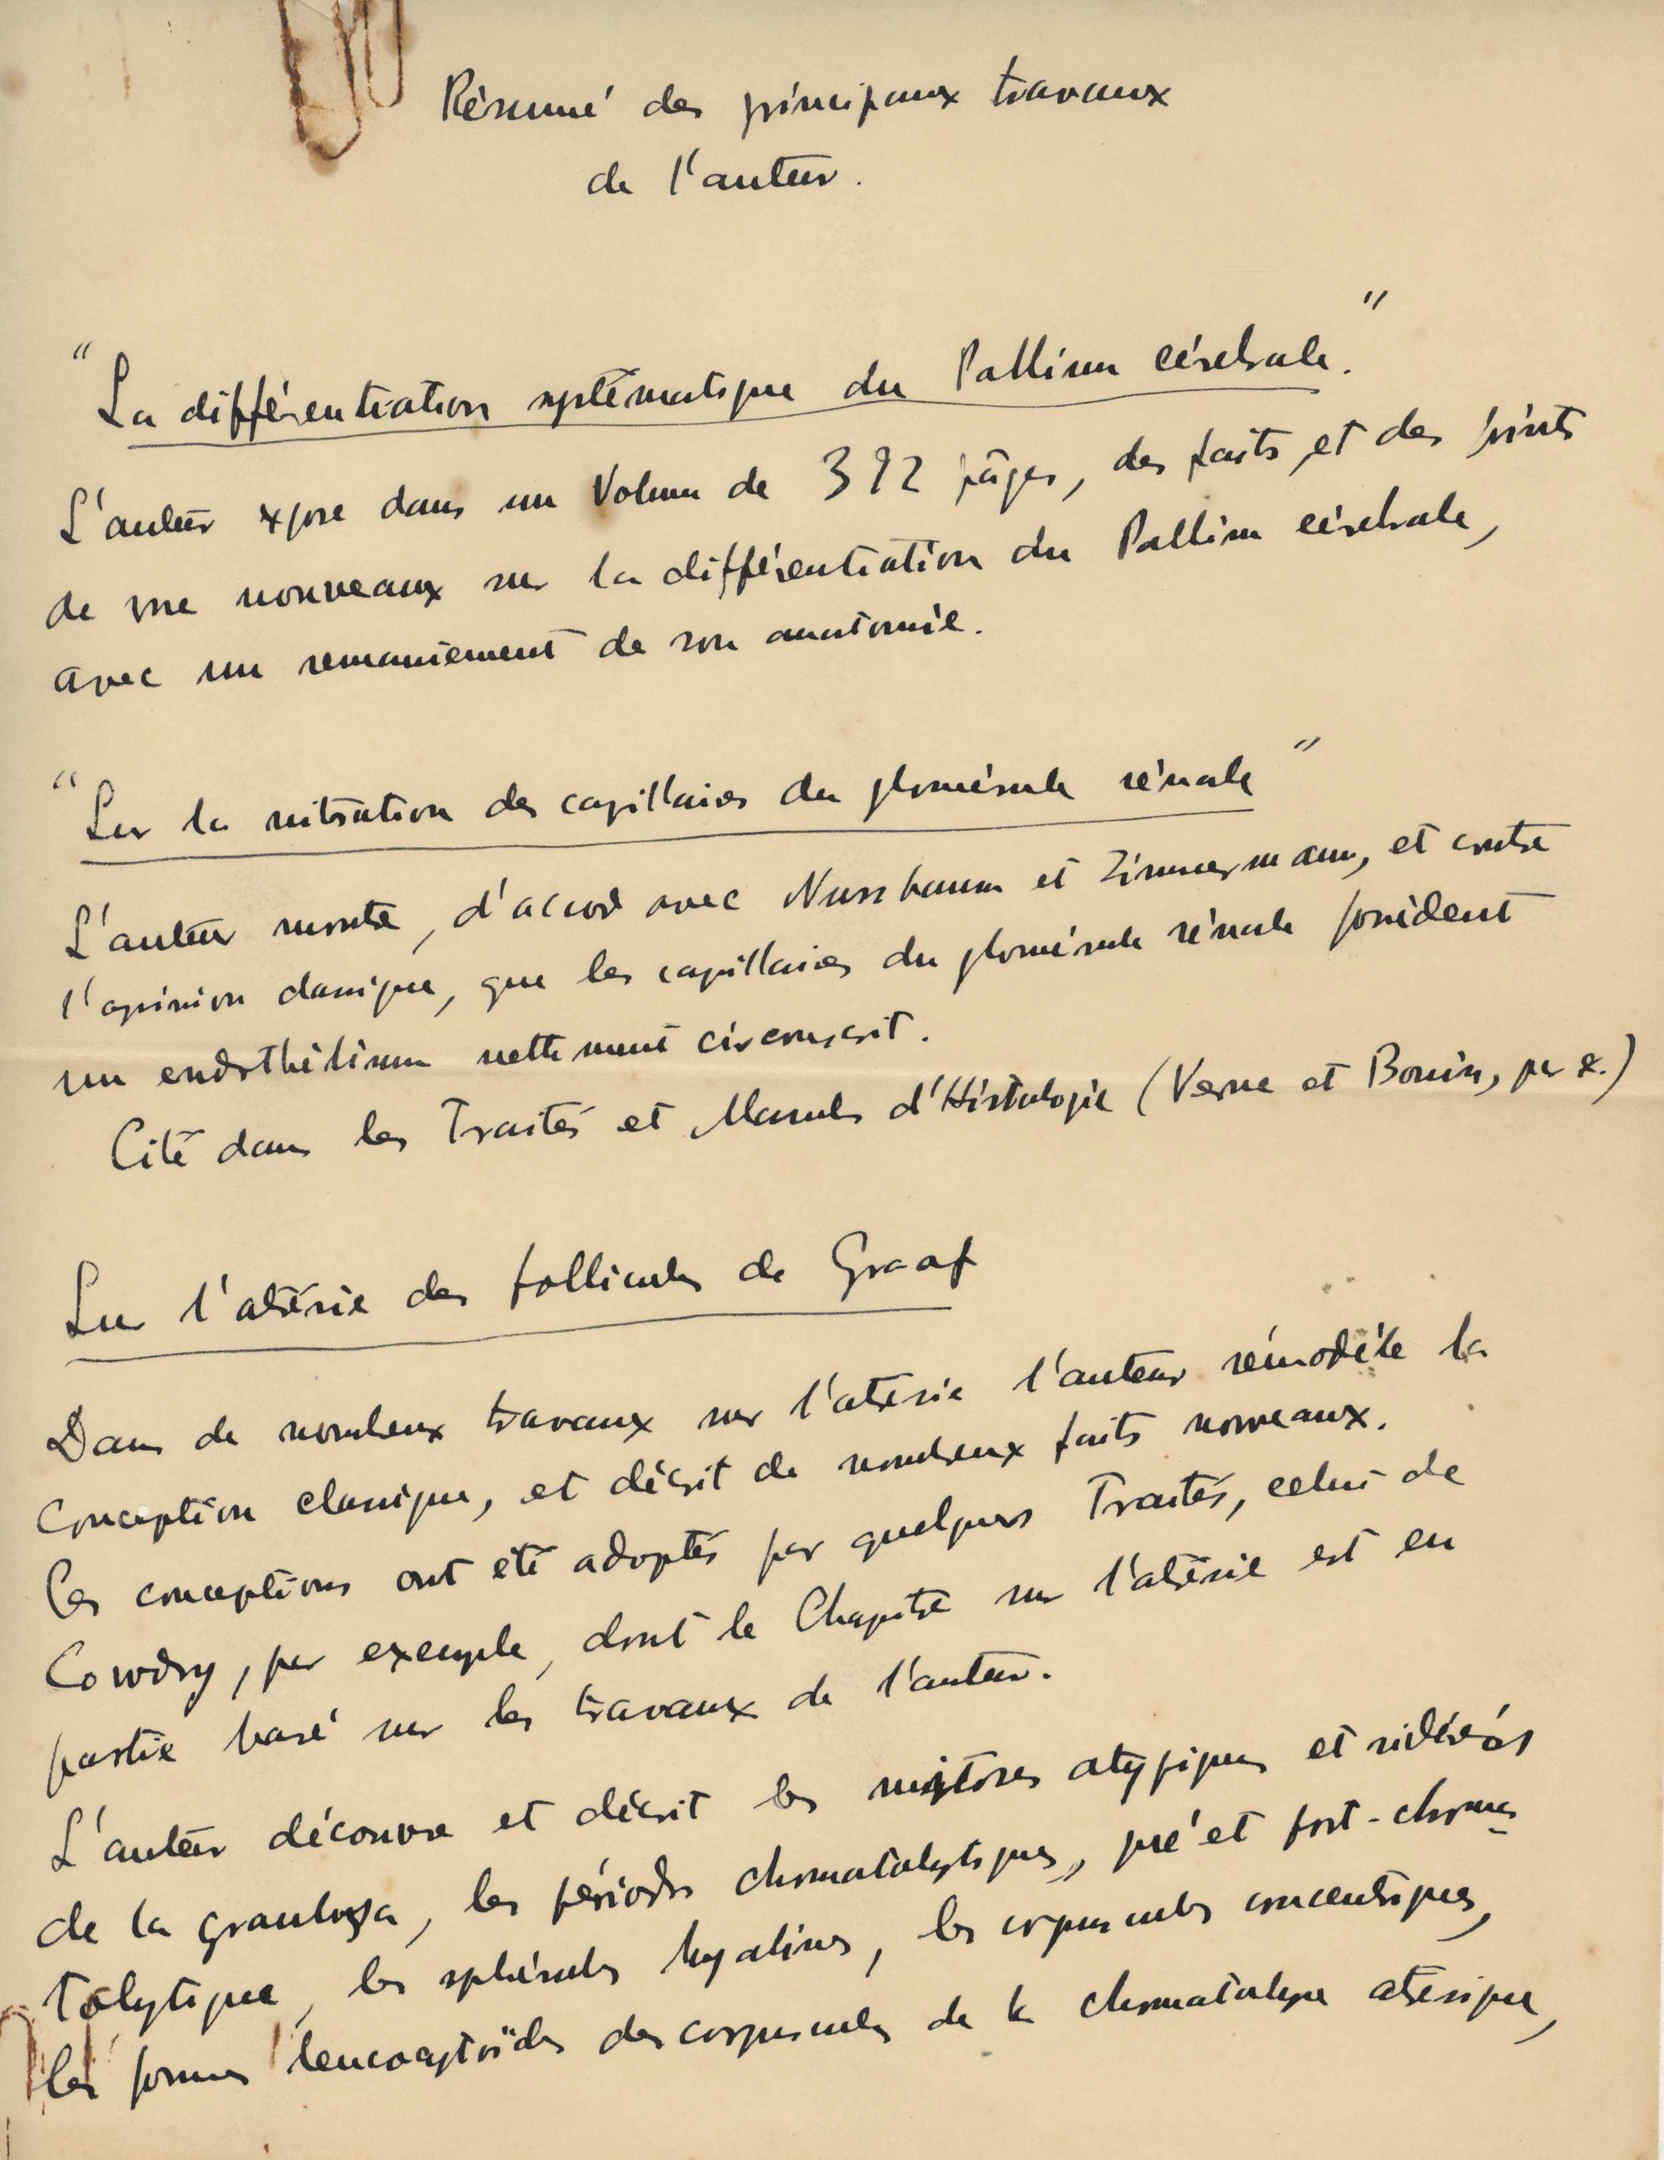 Résumé des principaux travaux
de l'auteur.
"La différentiation systématique du Pallium cérébrale."
L'auteur expose dans un Volume de 392 pâges, des faits et des points
de vue nouveaux sur la différentiation du Pallium cérébrale,
avec un remaniement de son anatomie.
"Sur la nitration des capillaires du glomérule rénale"
L'auteur montre, d'accord avec Nussbaum et Zimmermann, et contre
l'opinion classique, que les capillaires du glomérule rénale possèdent
un endothélium nettement circonscrit.
Cité dans les Traités et Manuels d'Histologie (Verne et Bouin, par ex.)
Sur l'atrésie des follicules de Graaf
Dans de nombreux travaux sur l'atrésie l'auteur rémodèle la
conception classique, et décrit de nombreux faits nouveaux.
Ces conceptions ont été adoptés par quelques Traités, celui de
Cowdry, par exemple, dont le Chapitre sur l'atrésie est en
partie basé sur les travaux de l'auteur.
L'auteur découvre et décrit les mitoses atypiques et
de la granulosa, les périodes chromatolytiques, pré et post-chroma-
tolytique, les sphérules hyalines, les corpuscules concentriques,
les formes leucocytoïdes des corpuscules de la chromatolyse atrésique,